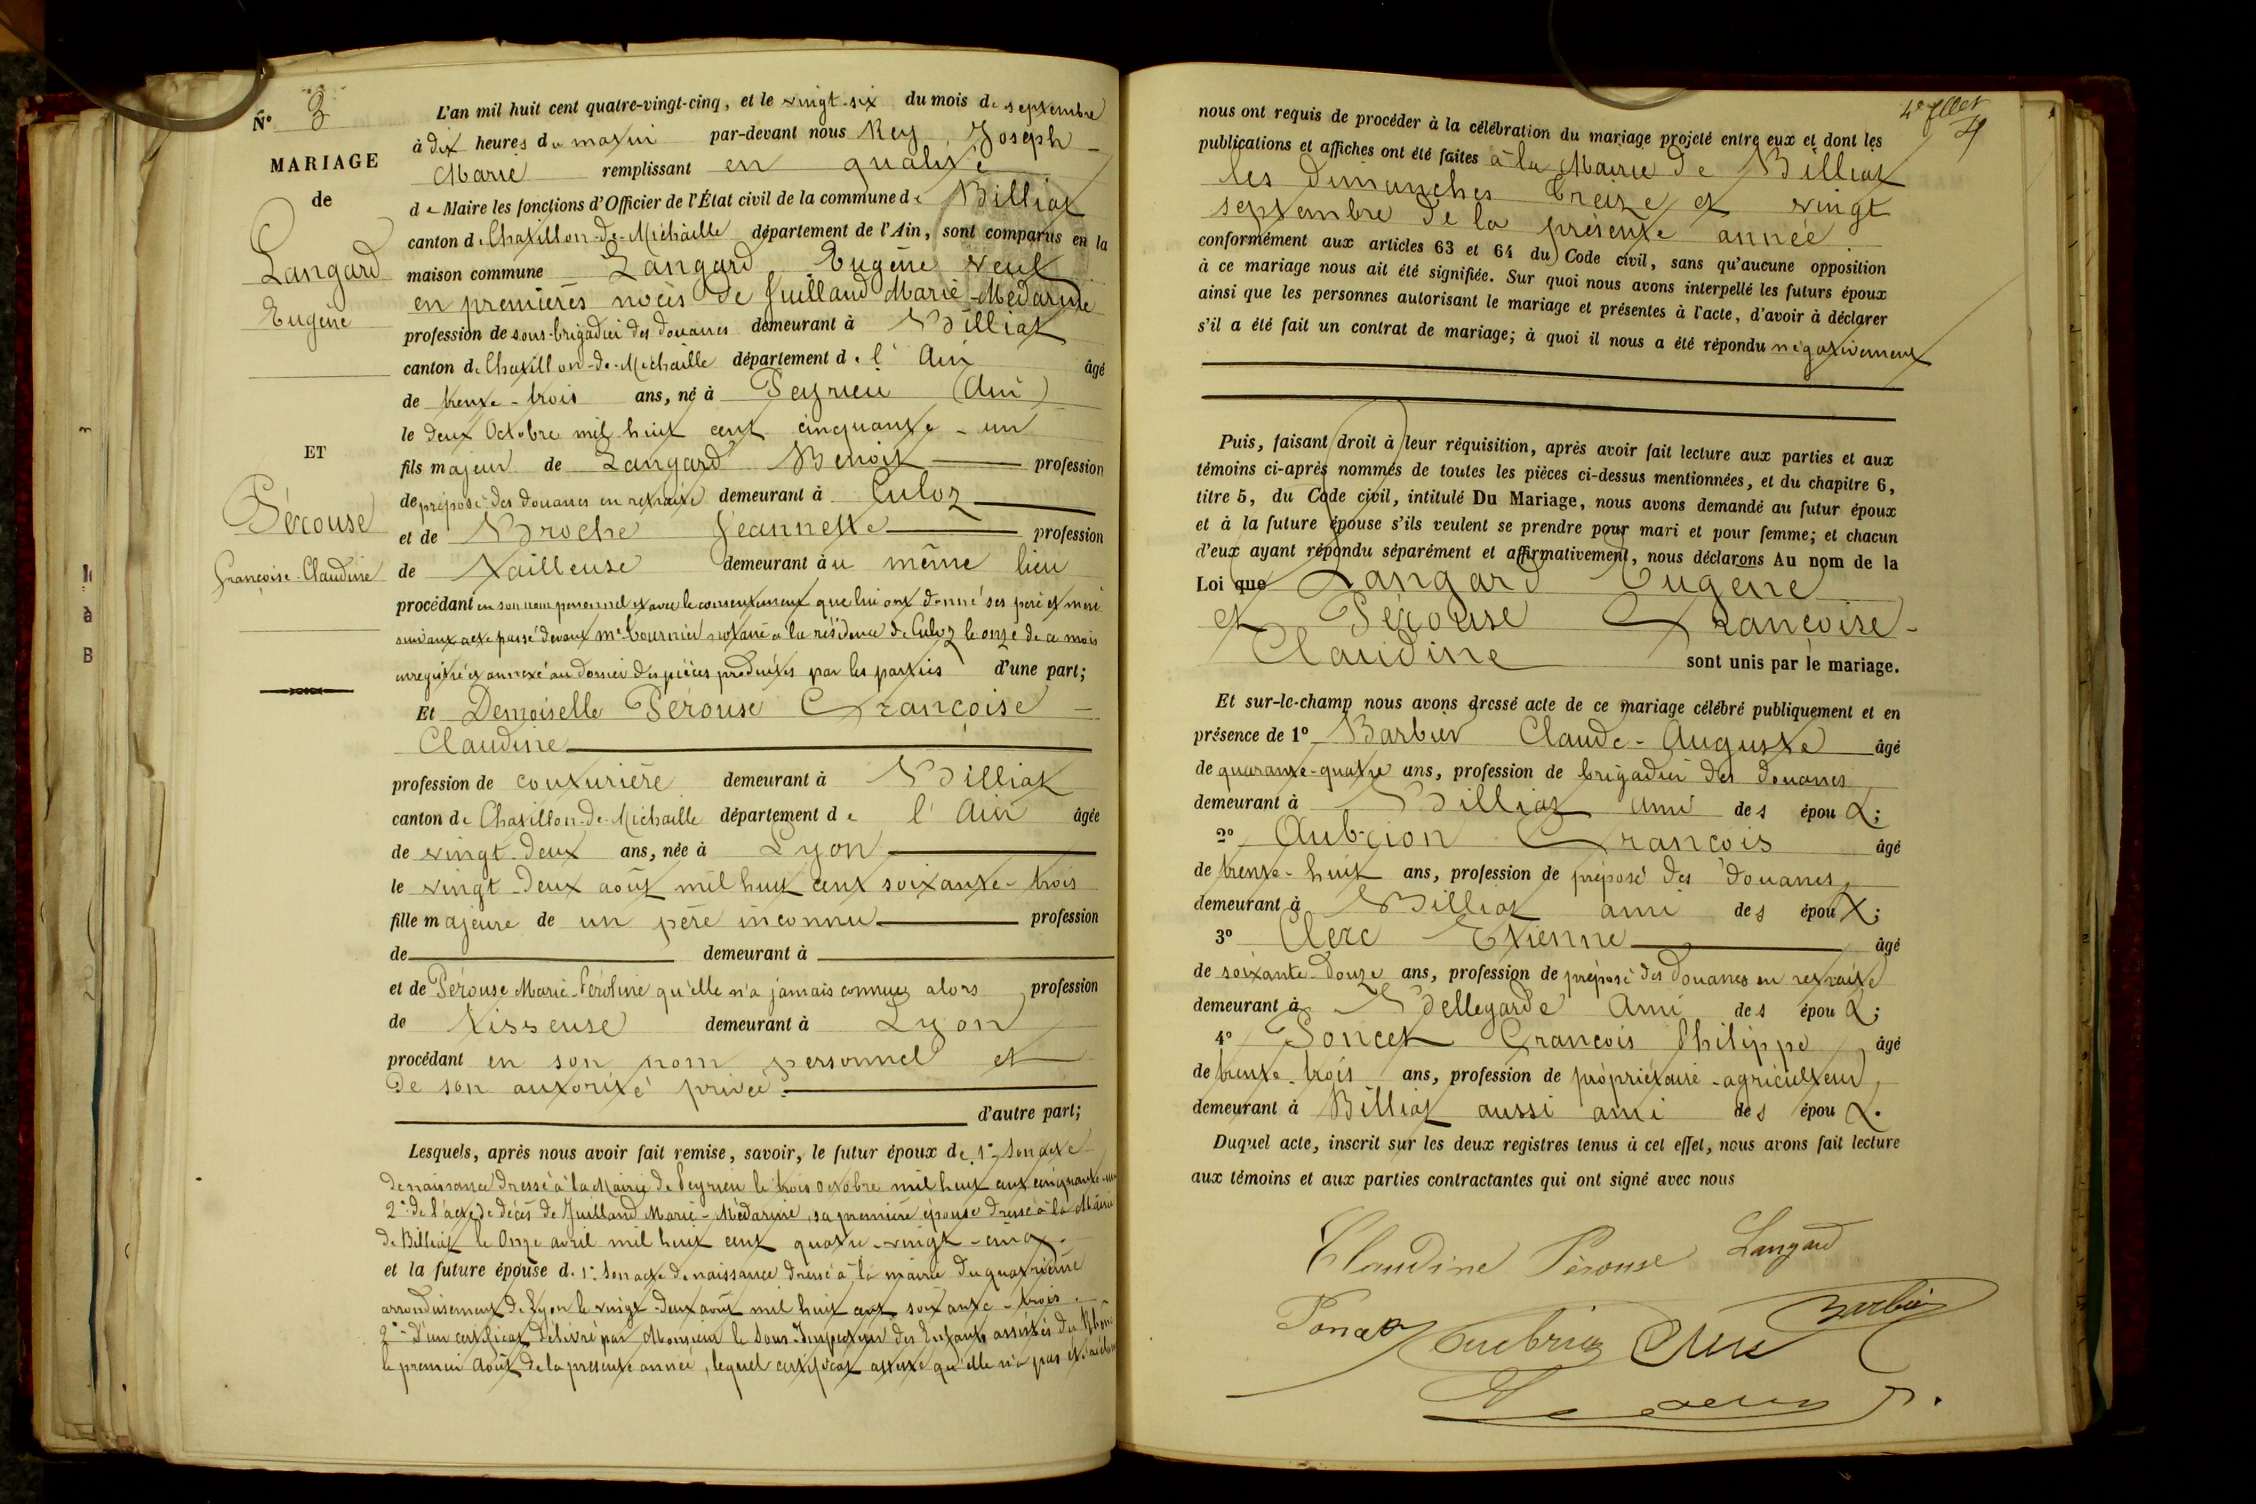 N° 3
MARIAGE
de
Langard
Eugène
ET
Pérouse
Françoise-Claudine
L'an mil huit cent quatre-vingt-cinq, et le vingt-six du mois de septembre
à dix heures du matin par-devant nous Rey Joseph
Marie remplissant en qualité
de Maire les fonctions d'Officier de l'État civil de la commune de Billiat
canton de Chatillon-de-Michaille département de l'Ain, sont comparus en la
maison commune Langard Eugène veuf
en premières noces de Juilland Marie-Médarine
profession de sous-brigadier des douanes demeurant à Billiat
canton de Chatillon-de-Michaille département de l'Ain âgé
de trente-trois ans, né à Peyrieu (Ain)
le deux Octobre mil huit cent cinquante-un
fils majeur de Langard Benoit profession
de préposé des douanes en retraite demeurant à Culoz
et de Broche Jeannette profession
de tailleuse demeurant au même lieu
procédant en son nom personnel et avec le consentement que lui ont donné ses père et mère
suivant acte passé devant Me Tournier notaire à la résidence de Culoz le onze de ce mois
enregistré et annexé au dossier des pièces produites par les parties d'une part;
Et Demoiselle Pérouse Françoise
Claudine
profession de couturière demeurant à Billiat
canton de Chatillon-de-Michaille département de l'Ain âgée
de vingt-deux ans, née à Lyon
le vingt-deux août mil huit cent soixante-trois
fille majeure de un père inconnu profession
de demeurant à
et de Pérouse Marie-Pérotine qu'elle n'a jamais connue, alors profession
de tisseuse demeurant à Lyon
procédant en son nom personnel et
de son autorité privée
d'autre part;
Lesquels, après nous avoir fait remise, savoir, le futur époux de 1° Son acte
de naissance dressé à la Mairie de Peyrieu le trois octobre mil huit cent cinquante-un
2° de l'acte de décès de Juilland Marie-Médarine, sa première épouse dressé à la Mairie
de Billiat le Onze avril mil huit cent quatre-vingt-cinq.
et la future épouse de 1° Son acte de naissance dressé à la mairie du quatrième
arrondissement de Lyon le vingt-deux août mil huit cent soixante-trois.
2° D'un certificat délivré par Monsieur le Sous-Inspecteur des Enfants assistés du Rhône
le premier Août de la présente année, lequel certificat atteste qu'elle n'a pas
4e fllet
nous ont requis de procéder à la célébration du mariage projeté entre eux et dont les
publications et affiches ont été faites à la Mairie de Billiat
les Dimanches treize et vingt
septembre de la présente année
conformément aux articles 63 et 64 du Code civil, sans qu'aucune opposition
à ce mariage nous ait été signifiée. Sur quoi nous avons interpellé les futurs époux
ainsi que les personnes autorisant le mariage et présentes à l'acte, d'avoir à déclarer
s'il a été fait un contrat de mariage; à quoi il nous a été répondu négativement
Puis, faisant droit à leur réquisition, après avoir fait lecture aux parties et aux
témoins ci-après nommés de toutes les pièces ci-dessus mentionnées, et du chapitre 6,
titre 5, du Code civil, intitulé Du Mariage, nous avons demandé au futur époux
et à la future épouse s'ils veulent se prendre pour mari et pour femme; et chacun
d'eux ayant répondu séparément et affirmativement, nous déclarons Au nom de la
Loi que Langard Eugène
et Pérouse Françoise-
Claudine sont unis par le mariage.
Et sur-le-champ nous avons dressé acte de ce mariage célébré publiquement et en
présence de 1° Barbier Claude-Auguste âgé
de quarante-quatre ans, profession de brigadier des douanes
demeurant à Billiat ami des époux;
2° François âgé
de trente-huit ans, profession de préposé des douanes,
demeurant à Billiat ami des époux;
3° Clerc Etienne âgé
de soixante-douze ans, profession de préposé des Douanes en retraite
demeurant à Bellegarde Ami des époux;
4° Poncet François Philippe âgé
de trente-trois ans, profession de propriétaire-agriculteur,
demeurant à Billiat aussi ami des époux.
Duquel acte, inscrit sur les deux registres tenus à cet effet, nous avons fait lecture
aux témoins et aux parties contractantes qui ont signé avec nous
Claudine Pérouse Langard
Poncet Clerc Barbier